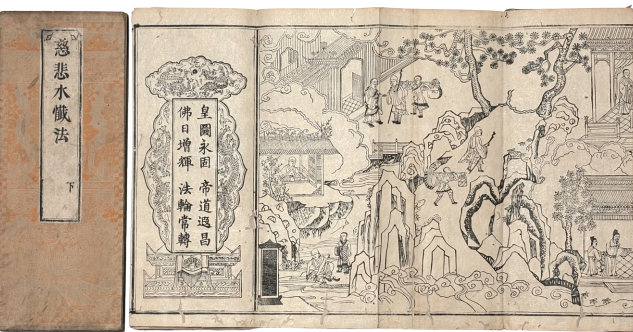 慈悲水懺法
下
皇圖永固 帝道遐昌
佛日增輝 法輪常轉